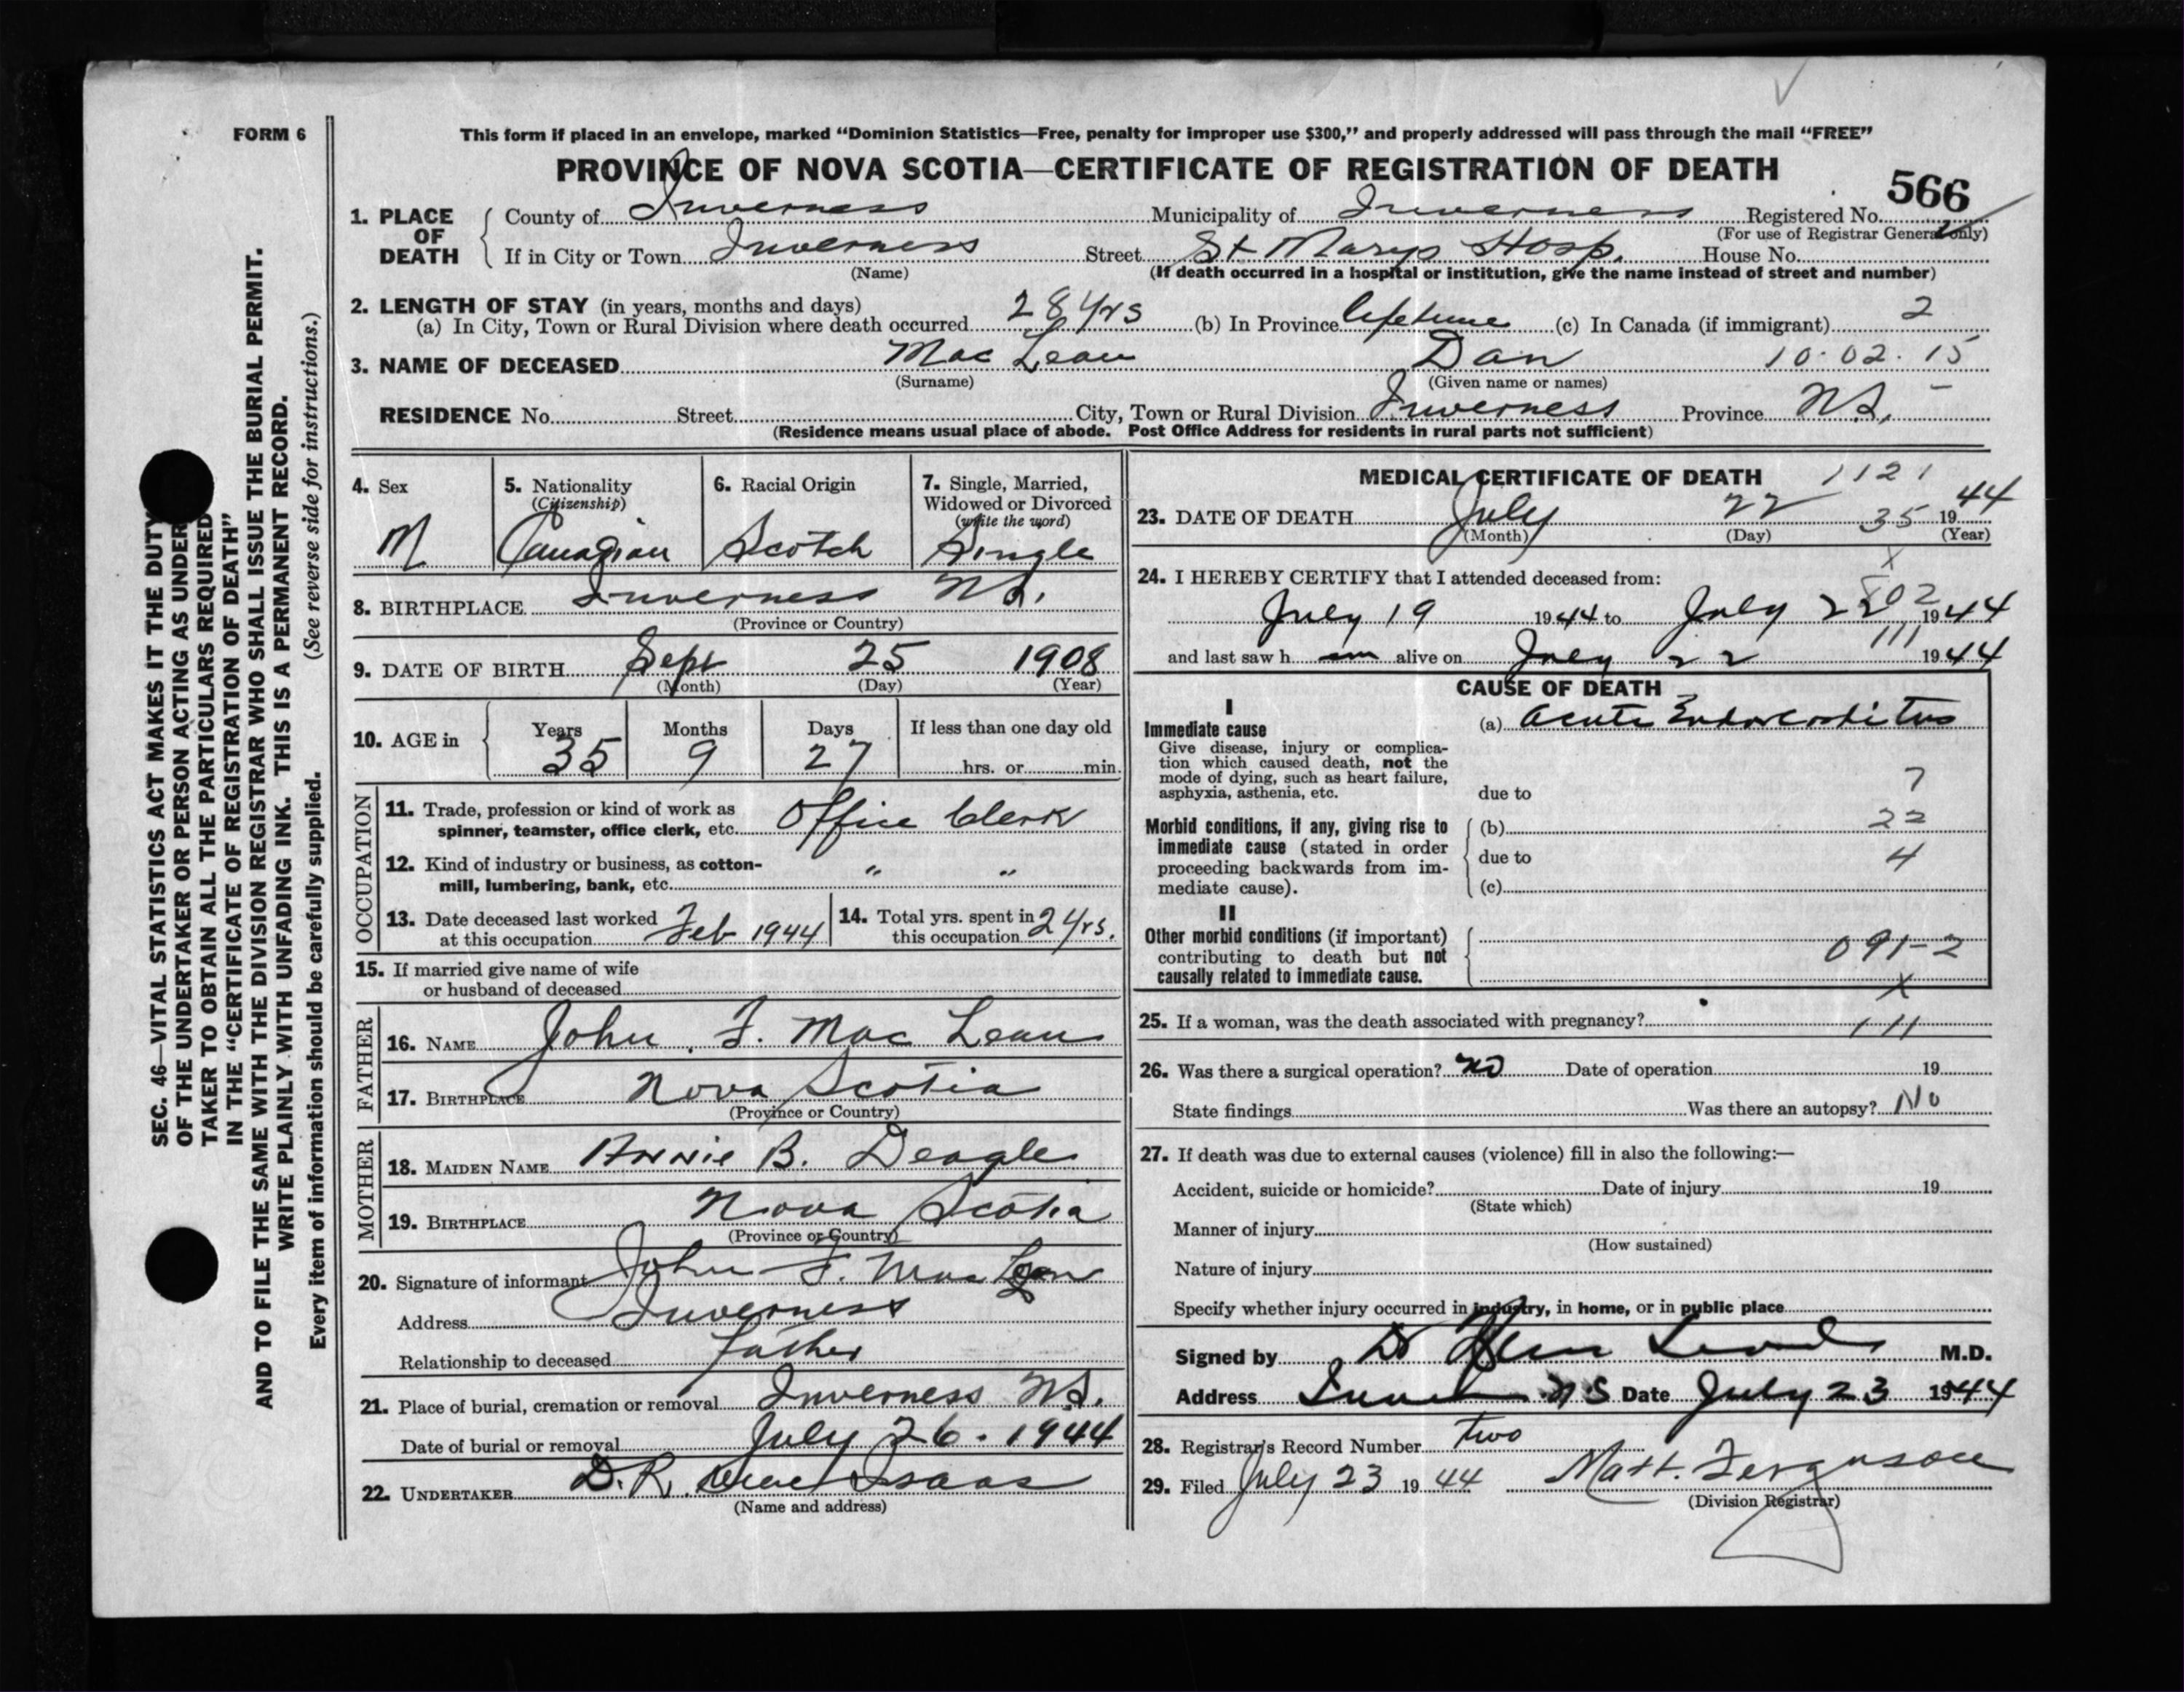 FORM 6
This form if placed in an envelope, marked “Dominion Statistics—Free, penalty for improper use $300,” and properly addressed will pass through the mail “FREE”
PROVINCE OF NOVA SCOTIA—CERTIFICATE OF REGISTRATION OF DEATH
566
1. PLACE OF DEATH { County of Inverness Municipality of Inverness Registered No.
(For use of Registrar General only)
If in City or Town Inverness Street St Marys Hosp. House No.
(Name) (If death occurred in a hospital or institution, give the name instead of street and number)
2. LENGTH OF STAY (in years, months and days)
(a) In City, Town or Rural Division where death occurred 28 yrs (b) In Province lifetime (c) In Canada (if immigrant) 2
3. NAME OF DECEASED Mac Lean Dan 10.02.15
(Surname) (Given name or names)
RESIDENCE No. Street City, Town or Rural Division Inverness Province N.S.
(Residence means usual place of abode. Post Office Address for residents in rural parts not sufficient)
4. Sex M
5. Nationality (Citizenship) Canadian
6. Racial Origin Scotch
7. Single, Married, Widowed or Divorced (write the word) Single
8. BIRTHPLACE Inverness N.S.
(Province or Country)
9. DATE OF BIRTH Sept 25 1908
(Month) (Day) (Year)
10. AGE in { Years 35 Months 9 Days 27 If less than one day old
hrs. or min.
OCCUPATION
11. Trade, profession or kind of work as
spinner, teamster, office clerk, etc. Office Clerk
12. Kind of industry or business, as cotton-
mill, lumbering, bank, etc. " "
13. Date deceased last worked at this occupation Feb 1944
14. Total yrs. spent in this occupation 2 yrs.
15. If married give name of wife
or husband of deceased
FATHER
16. NAME John F. Mac Lean
17. BIRTHPLACE Nova Scotia
(Province or Country)
MOTHER
18. MAIDEN NAME Annie B. Deagle
19. BIRTHPLACE Nova Scotia
(Province or Country)
20. Signature of informant John F. Mac Lean
Address Inverness
Relationship to deceased Father
21. Place of burial, cremation or removal Inverness N.S.
Date of burial or removal July 26. 1944
22. UNDERTAKER D.R. MacIsaac
(Name and address)
MEDICAL CERTIFICATE OF DEATH 1121
23. DATE OF DEATH July 22 35 1944
(Month) (Day) (Year)
X
24. I HEREBY CERTIFY that I attended deceased from:
July 19 1944 to July 22 1944
111
and last saw h im alive on July 22 1944
CAUSE OF DEATH
I
Immediate cause
Give disease, injury or complica-
tion which caused death, not the
mode of dying, such as heart failure,
asphyxia, asthenia, etc.
(a) Acute Endocarditus
due to 7
Morbid conditions, if any, giving rise to
immediate cause (stated in order
proceeding backwards from im-
mediate cause).
(b) 22
due to 4
(c)
II
Other morbid conditions (if important)
contributing to death but not
causally related to immediate cause.
091-2
X
25. If a woman, was the death associated with pregnancy? 111
26. Was there a surgical operation? no Date of operation 19
State findings Was there an autopsy? No
27. If death was due to external causes (violence) fill in also the following:—
Accident, suicide or homicide? Date of injury 19
(State which)
Manner of injury
(How sustained)
Nature of injury
Specify whether injury occurred in industry, in home, or in public place
Signed by M.D.
Address N.S Date July 23 1944
28. Registrar's Record Number Two
29. Filed July 23 1944 Matt. Ferguson
(Division Registrar)
SEC. 46—VITAL STATISTICS ACT MAKES IT THE DUTY
OF THE UNDERTAKER OR PERSON ACTING AS UNDER
TAKER TO OBTAIN ALL THE PARTICULARS REQUIRED
IN THE “CERTIFICATE OF REGISTRATION OF DEATH”
AND TO FILE THE SAME WITH THE DIVISION REGISTRAR WHO SHALL ISSUE THE BURIAL PERMIT.
WRITE PLAINLY WITH UNFADING INK. THIS IS A PERMANENT RECORD.
Every item of information should be carefully supplied. (See reverse side for instructions.)